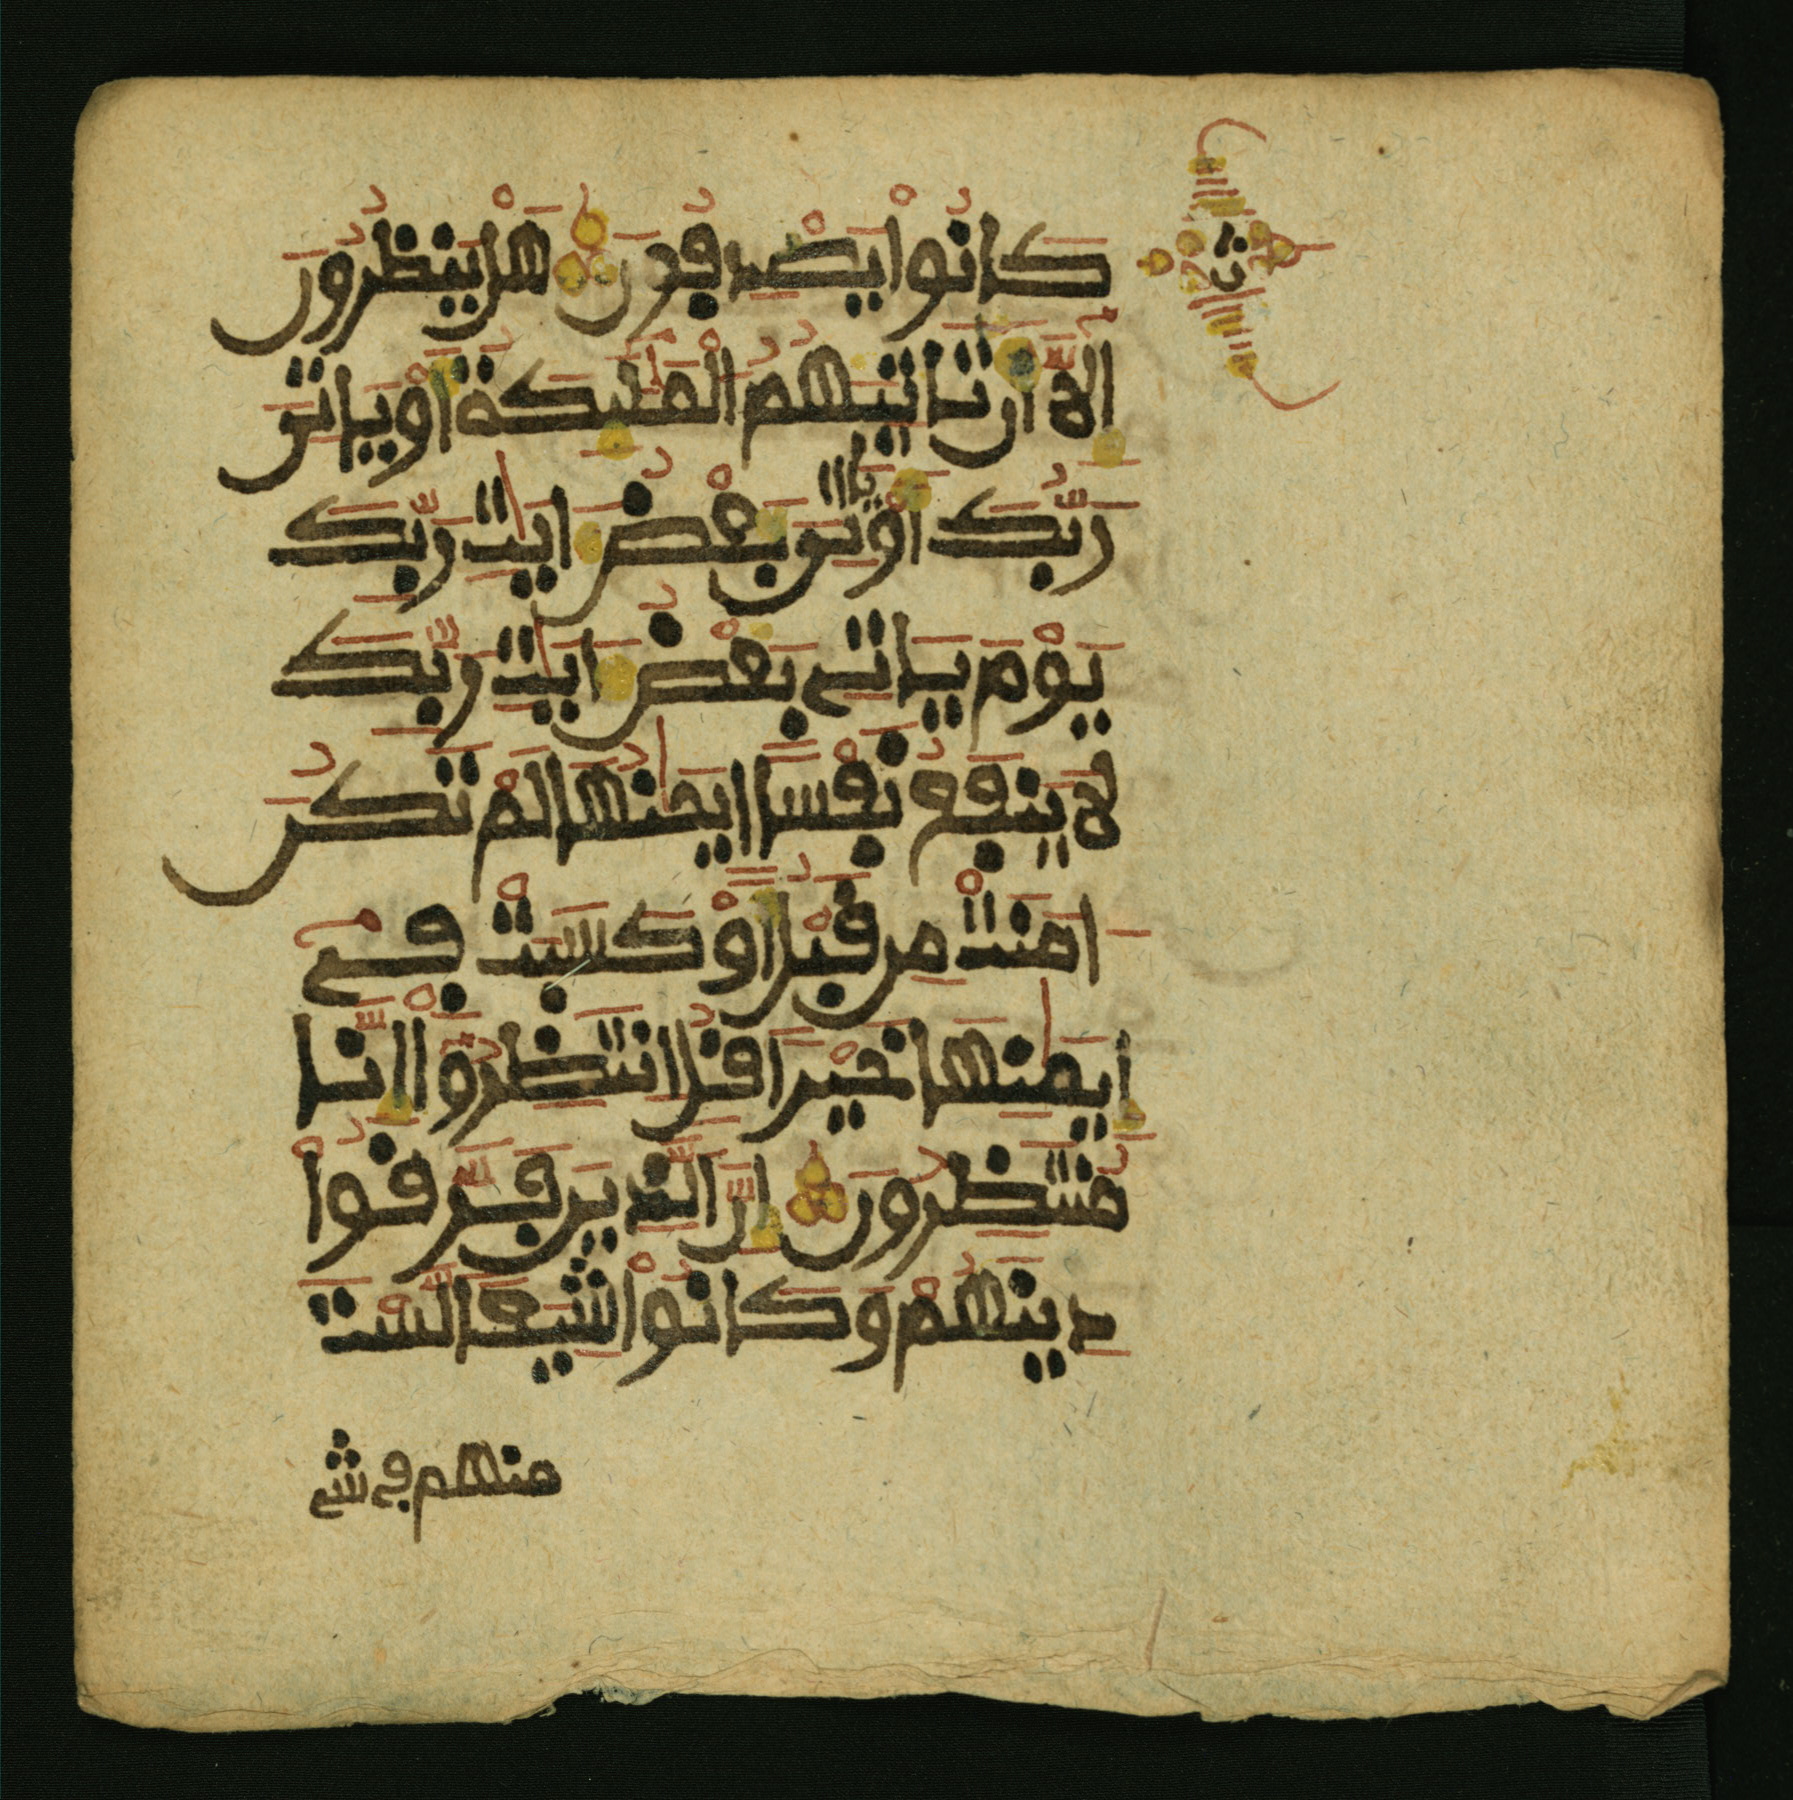 كَانُواْ يَصْدِفُونَ هَلْ يَنظُرُونَ
إِلَّا أَن تَاتِيَهُمُ الْمَلَٰئِكَةُ أَوْ يَاتِيَ
رَبُّكَ أَوْ يَاتِيَ بَعْضُ ايَٰتِ رَبِّكَ
يَوْمَ يَاتِي بَعْضُ ايَٰتِ رَبِّكَ
لَا يَنفَعُ نَفْسًا ايمَٰنُهَا لَمْ تَكُن
امَنَتْ مِن قَبْلُ أَوْ كَسَبَتْ فِي
إِيمَٰنِهَا خَيْرًا قُلِ انتَظِرُواْ إِنَّا
مُنتَظِرُونَ إِنَّ الَّذِينَ فَرَّقُواْ
دِينَهُمْ وَكَانُواْ شِيَعًا لَّسْتَ
منهم في شي